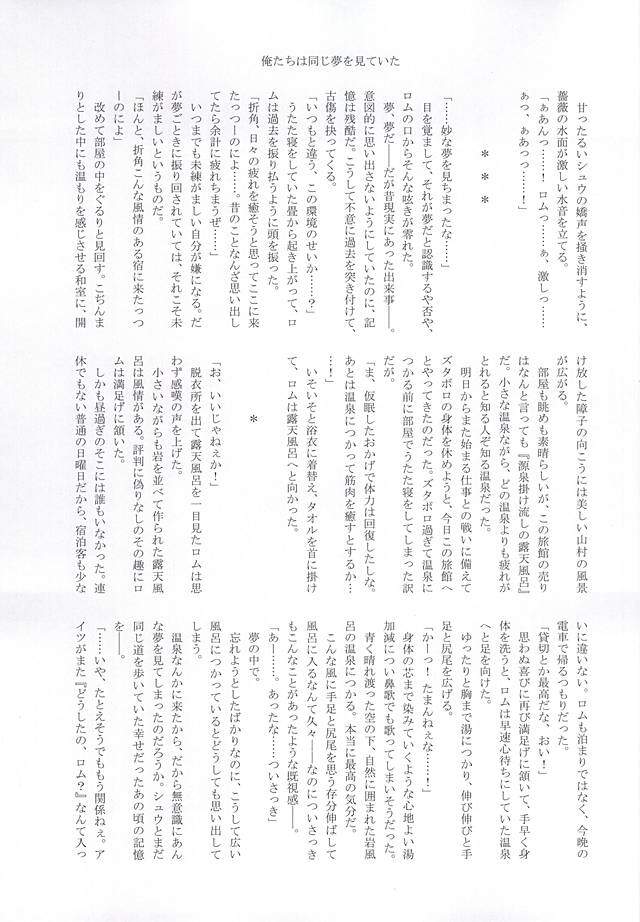 俺たちは同じ夢を見ていた
甘ったるいシュウの嬌声を掻き消すように、
薔薇の水面が激しい水音を立てる。
「ぁあんっ……！　ロムっ……ぁ、激しっ……
ぁっ、ぁあっっ……！」
＊＊＊
「……妙な夢を見ちまったな……」
目を覚まして、それが夢だと認識するや否や、
ロムの口からそんな呟きが零れた。
夢、夢だ――だが昔現実にあった出来事――。
意図的に思い出さないようにしていたのに、記
憶は残酷だ。こうして不意に過去を突き付けて、
古傷を抉ってくる。
「いつもと違う、この環境のせいか……？」
うたた寝をしていた畳から起き上がって、ロ
ムは過去を振り払うように頭を振った。
「折角、日々の疲れを癒そうと思ってここに来
たっつーのによ……。昔のことなんざ思い出し
てたら余計に疲れちまうぜ……」
いつまでも未練がましい自分が嫌になる。だ
が夢ごときに振り回されていては、それこそ未
練がましいというものだ。
「ほんと、折角こんな風情のある宿に来たっつ
ーのによ」
改めて部屋の中をぐるりと見回す。こぢんま
りとした中にも温もりを感じさせる和室に、開
け放した障子の向こうには美しい山村の風景
が広がる。
部屋も眺めも素晴らしいが、この旅館の売り
はなんと言っても『源泉掛け流しの露天風呂』
だ。小さな温泉ながら、どの温泉よりも疲れが
とれると知る人ぞ知る温泉だった。
明日からまた始まる仕事との戦いに備えて
ズタボロの身体を休めようと、今日この旅館へ
とやってきたのだった。ズタボロ過ぎて温泉に
つかる前に部屋でうたた寝をしてしまった訳
だが。
「ま、仮眠したおかげで体力は回復したしな。
あとは温泉につかって筋肉を癒すとするか…
…！」
いそいそと浴衣に着替え、タオルを首に掛け
て、ロムは露天風呂へと向かった。
＊
「お、いいじゃねぇか！」
脱衣所を出て露天風呂を一目見たロムは思
わず感嘆の声を上げた。
小さいながらも岩を並べて作られた露天風
呂は風情がある。評判に偽りなしのその趣にロ
ムは満足げに頷いた。
しかも昼過ぎのそこには誰もいなかった。連
休でもない普通の日曜日だから、宿泊客も少な
いに違いない。ロムも泊まりではなく、今晩の
電車で帰るつもりだった。
「貸切とか最高だな、おい！」
思わぬ喜びに再び満足げに頷いて、手早く身
体を洗うと、ロムは早速心待ちにしていた温泉
へと足を向けた。
ゆったりと胸まで湯につかり、伸び伸びと手
足と尻尾を広げる。
「かーっ！　たまんねぇな……！」
身体の芯まで染みていくような心地よい湯
加減につい鼻歌でも歌ってしまいそうだった。
青く晴れ渡った空の下、自然に囲まれた岩風
呂の温泉につかる。本当に最高の気分だ。
こんな風に手足と尻尾を思う存分伸ばして
風呂に入るなんて久々――なのについさっき
もこんなことがあったような既視感――。
「あー……。あったな……ついさっき」
夢の中で。
忘れようとしたばかりなのに、こうして広い
風呂につかっているとどうしても思い出して
しまう。
温泉なんかに来たから、だから無意識にあん
な夢を見てしまったのだろうか。シュウとまだ
同じ道を歩いていた幸せだったあの頃の記憶
を――。
「……いや、たとえそうでももう関係ねぇ。ア
イツがまた『どうしたの、ロム？』なんて人っ